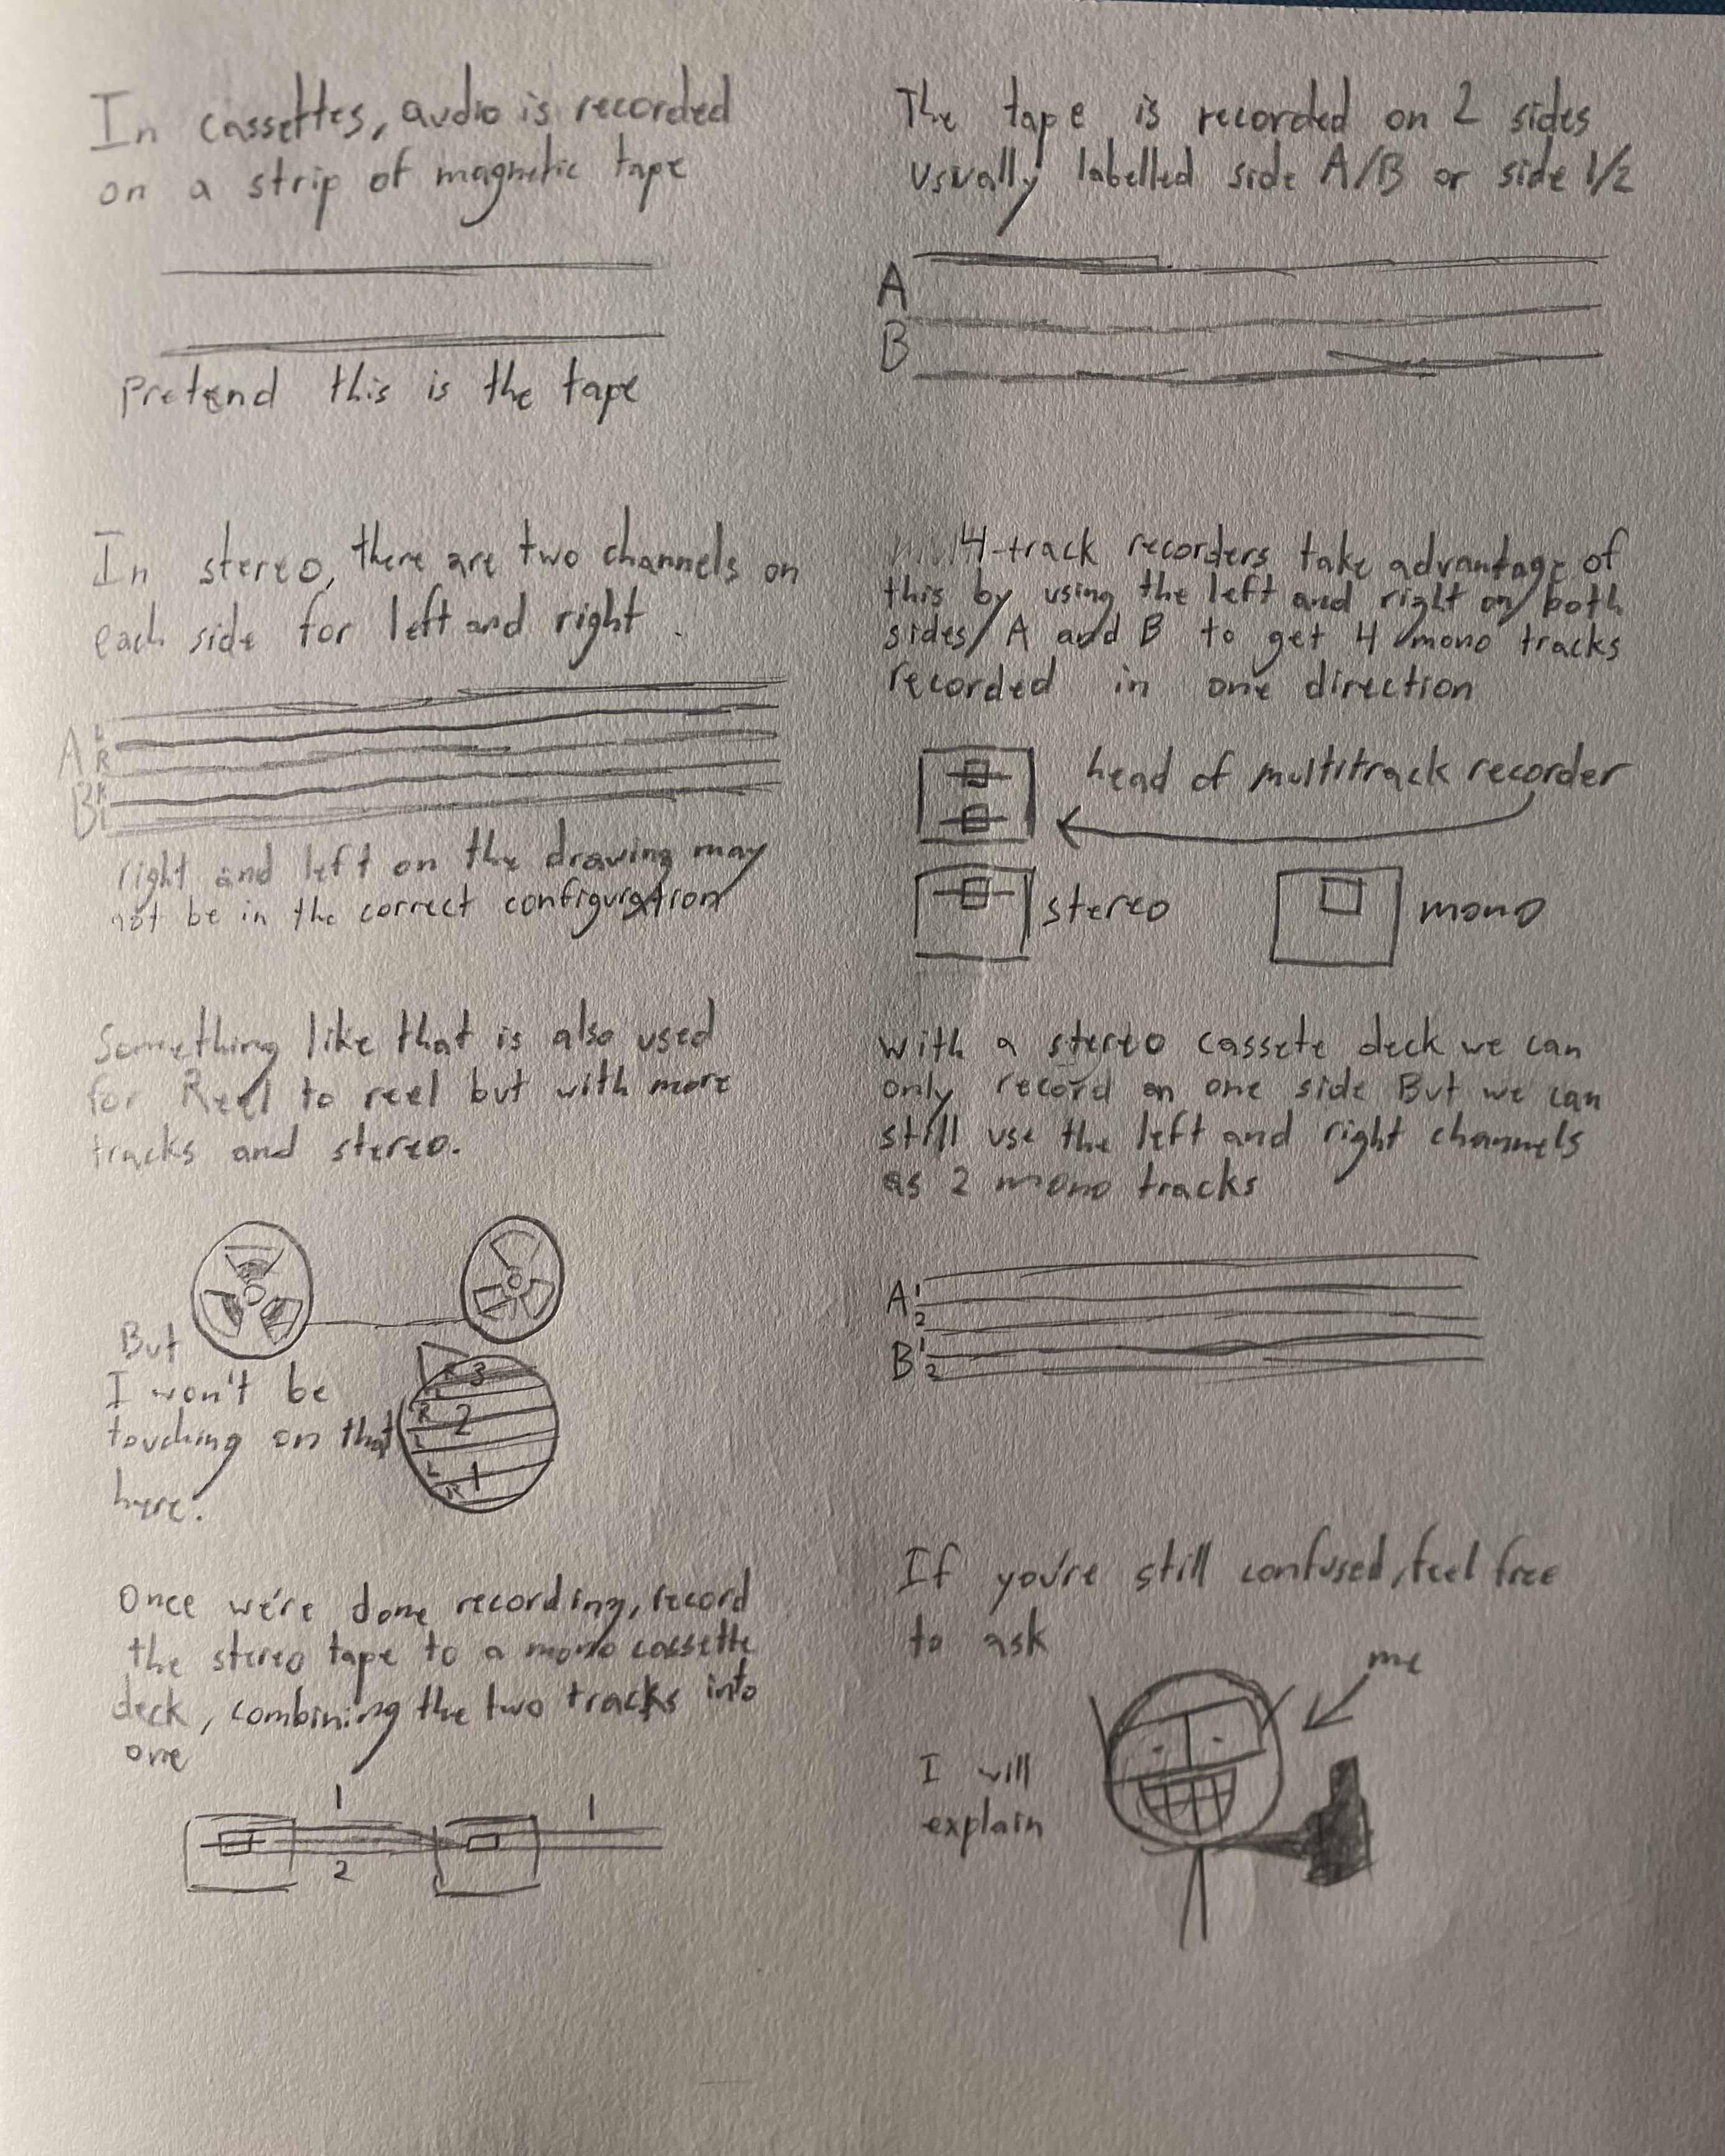 In cassettes, audio is recorded
on a strip of magnetic tape
Pretend this is the tape
The tape is recorded on 2 sides
usually labelled side A/B or side 1/2
A
B
In stereo, there are two channels on
each side for left and right.
A L
R
B R
L
right and left on the drawing may
not be in the correct configuration
4-track recorders take advantage of
this by using the left and right on both
sides A and B to get 4 mono tracks
recorded in one direction
head of multitrack recorder
stereo
mono
Something like that is also used
for Reel to reel but with more
tracks and stereo.
But
I won't be
touching on that
here.
R 3
L
R 2
L
L 1
R
With a stereo cassete deck we can
only record on one side But we can
still use the left and right channels
as 2 mono tracks
A 1
2
B 1
2
Once we're done recording, record
the stereo tape to a mono cassette
deck, combining the two tracks into
one
1
2
1
If you're still confused, feel free
to ask
me
I will
explain